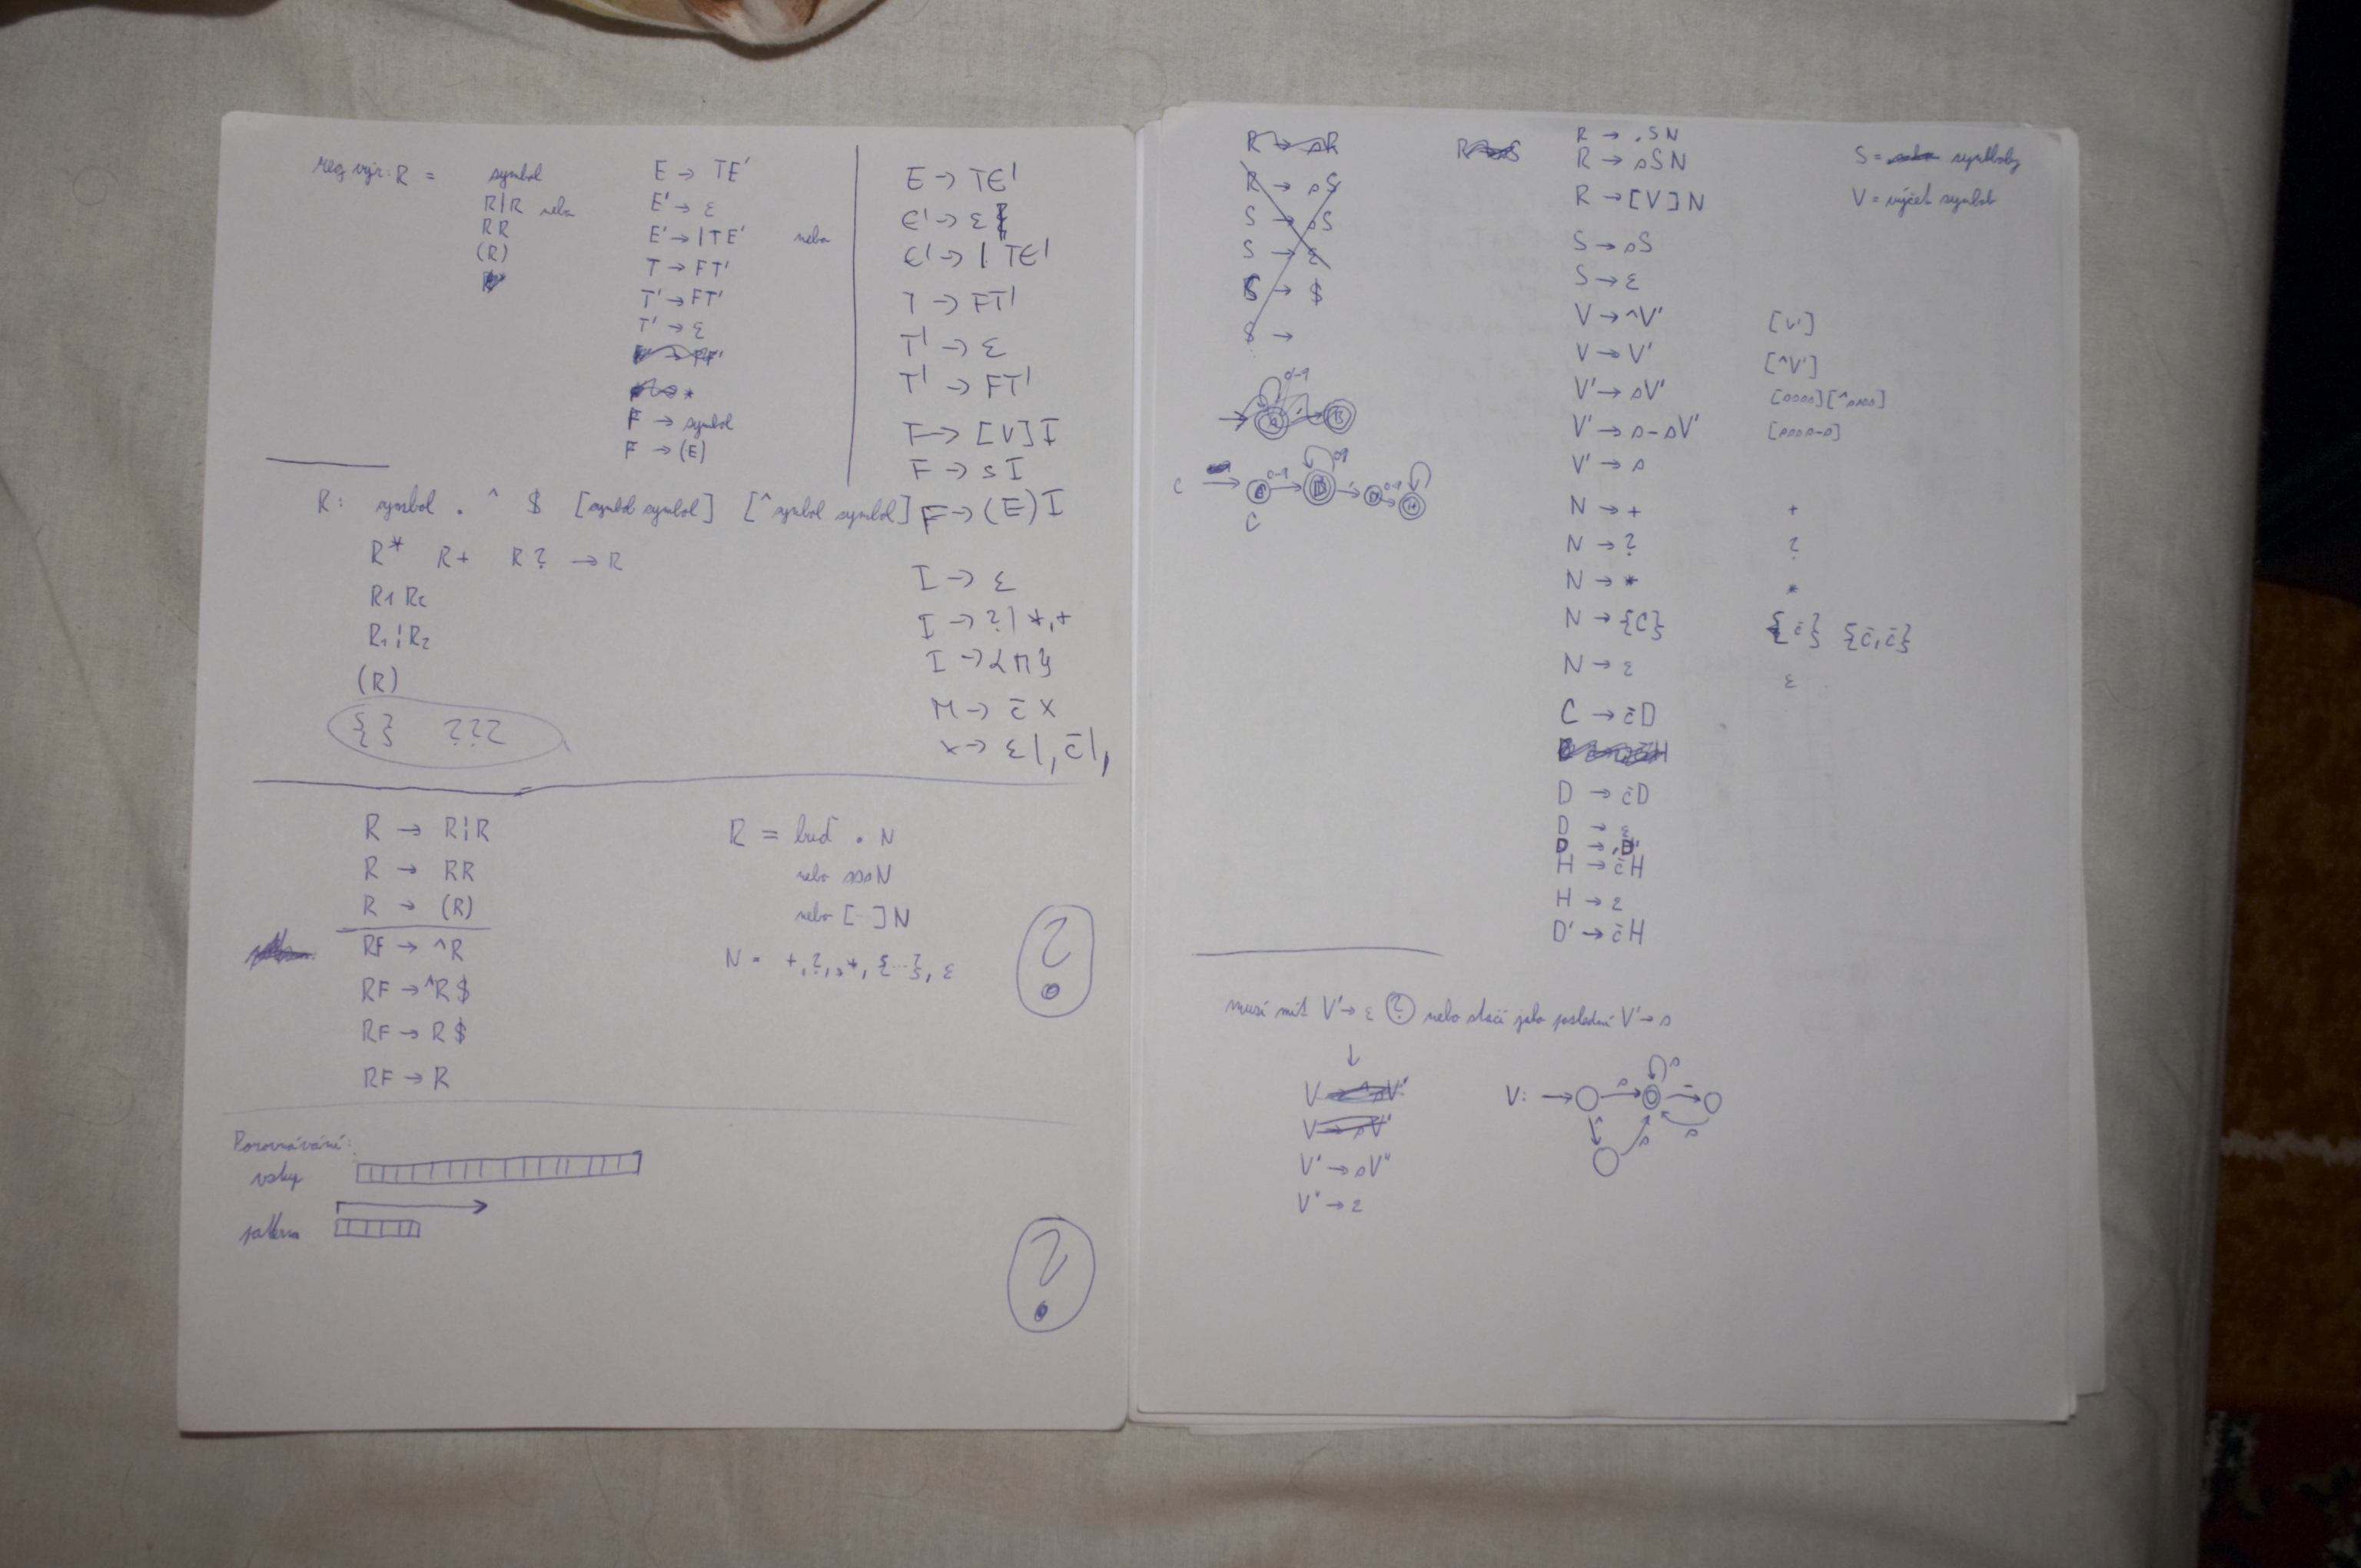 reg. výr. R = symbol
R|R nebo
RR
(R)
E → TE'
E' → ε
E' → |TE' nebo
T → FT'
T' → FT'
T' → ε
F → symbol
F → (E)
E → TE'
E' → ε
E' → | TE'
T → FT'
T' → ε
T' → FT'
F → [V]I
F → sI
F → (E)I
I → ε
I → ?|*,+
I → {M}
M → č X
X → ε|,č|,
R: symbol . ^ $ [symbol symbol] [^symbol symbol]
R* R+ R? → R
R1 R2
R1¦R2
(R)
{} ???
R → R¦R
R → RR
R → (R)
RF → ^R
RF → ^R$
RF → R$
RF → R
R = buď . N
nebo sssN
nebo [..]N
N = +,?,*,{...},ε
?
Porovnávání:
vstup
pattern
?
R → sR
R → sS
S → sS
S → ε
S → $
S →
R → .SN
R → sSN
R → [V]N
S → sS
S → ε
V → ^V'
V → V'
V' → sV'
V' → s-sV'
V' → s
N → +
N → ?
N → *
N → {C}
N → ε
C → čD
D → čD
D → ε
D → ,D'
H → čH
H → ε
D' → čH
S = symboly
V = výčet symbolů
[V']
[^V']
[ssss][^ssss]
[ssss-s]
+
?
*
{č} {č,č}
ε
0-9
C 0-9 0-9 , 0-9
C
musí mít V' → ε ? nebo stačí jako poslední V' → s
↓
V' → sV"
V" → ε
V: → s s - ^ s s